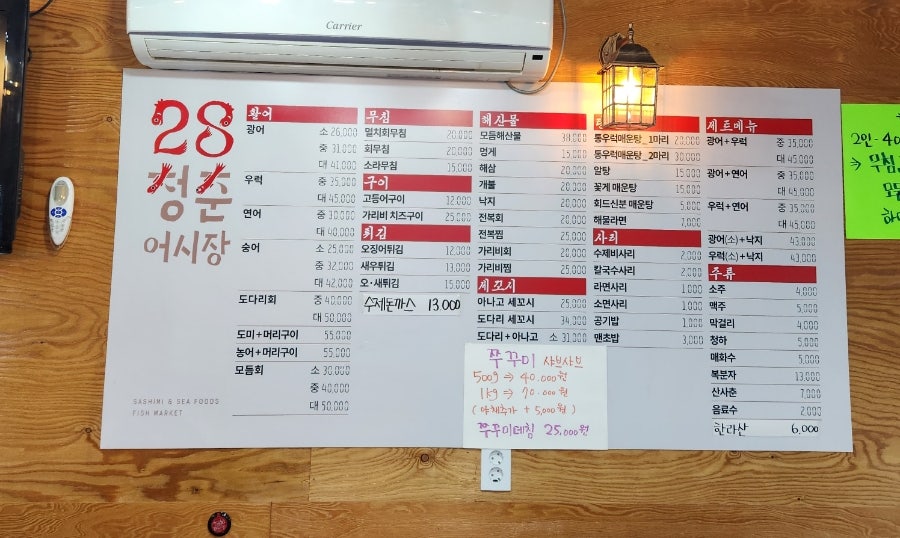 Carrier
28
청춘
어시장
SASHIMI & SEA FOODS
FISH MARKET
활어
광어 소 26,000
중 31,000
대 41,000
우럭 중 35,000
대 45,000
연어 중 30,000
대 40,000
숭어 소 25,000
중 32,000
대 42,000
도다리회 중 40,000
대 50,000
도미+머리구이 55,000
농어+머리구이 55,000
모듬회 소 30,000
중 40,000
대 50,000
무침
멸치회무침 20,000
회무침 20,000
소라무침 15,000
구이
고등어구이 12,000
가리비 치즈구이 25,000
튀김
오징어튀김 12,000
새우튀김 13,000
오·새튀김 15,000
수제돈까스 13.000
해산물
모듬해산물 30,000
멍게 15,000
해삼 20,000
개불 20,000
낙지 20,000
전복회 20,000
전복찜 25,000
가리비회 20,000
가리비찜 25,000
세꼬시
아나고 세꼬시 25,000
도다리 세꼬시 34,000
도다리+아나고 소 31,000
쭈꾸미 샤브샤브
500g ⇒ 40.000원
1kg ⇒ 70.000원
(야채추가 + 5,000원)
쭈꾸미데침 25,000원
통우럭매운탕_1마리 20,000
통우럭매운탕_2마리 30,000
알탕 15,000
꽃게 매운탕 15,000
회드신분 매운탕 5,000
해물라면 7,000
사리
수제비사리 2,000
칼국수사리 2,000
라면사리 1,000
소면사리 1,000
공기밥 1,000
맨초밥 3,000
세트메뉴
광어+우럭 중 35,000
대 45,000
광어+연어 중 35,000
대 45,000
우럭+연어 중 35,000
대 45,000
광어(소)+낙지 43,000
우럭(소)+낙지 43,000
주류
소주 4,000
맥주 5,000
막걸리 4,000
청하 5,000
매화수 5,000
복분자 13,000
산사춘 7,000
음료수 2,000
한라산 6,000
2인-40
⇒ 무침